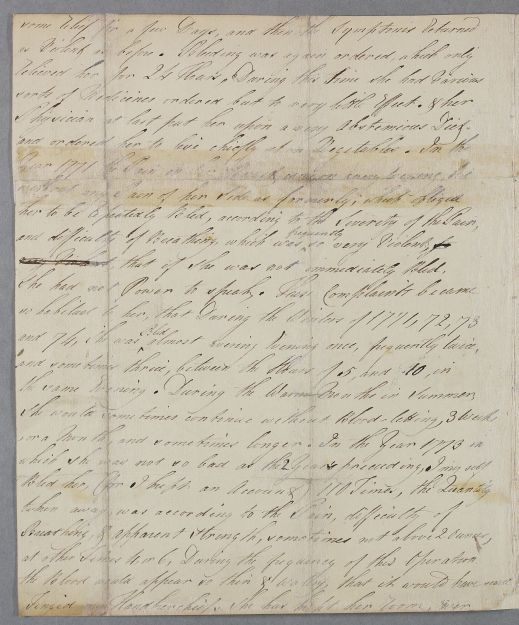 some relief for a few Days, and then the Symptoms returned
as Violent as before. Bleeding was again ordered, which only
relieved her for 24 Hours. During this time she had Various
sorts of Medicines ordered but to very little Effect. & her
Physician at last put her upon a very Abstemious Diet
and ordered her to live chiefly on Vegetables. In the
Year 1771 the Pain in her
Pain of her Side as formerly, which obliged
her to be repeatedly Bled, according to the Severity of the Pain,
and difficulty of Breathing, which was frequently so very Violent,
that if she was not immediately bled.
She had not Power to speak. This Complaint became
so habitual to her, that During the Winters of 1771, 72, 73
and 74, she was Bled almost every Evening once, frequently twice,
and sometimes three, between the Hours of 5 and 10, in
the same Evening. During the Warm Months in Summer
She would sometimes continue without blood-letting, 3 Weeks
or a Month, and sometimes longer. In the Year 1773 in
which she was not so bad as the 2 Years preceeding, I myself
bled her, (for I kept an Account) 110 Times, the Quantity
taken away was according to the Pain, difficulty of
Breathing, & apparent Strength, sometimes not above 2 Ounces,
at other times 4 or 6, During the frequency of this Operation
the blood would appear so thin & Watery, that it would have
Tinged my Handkerchief. She has kept her Room,